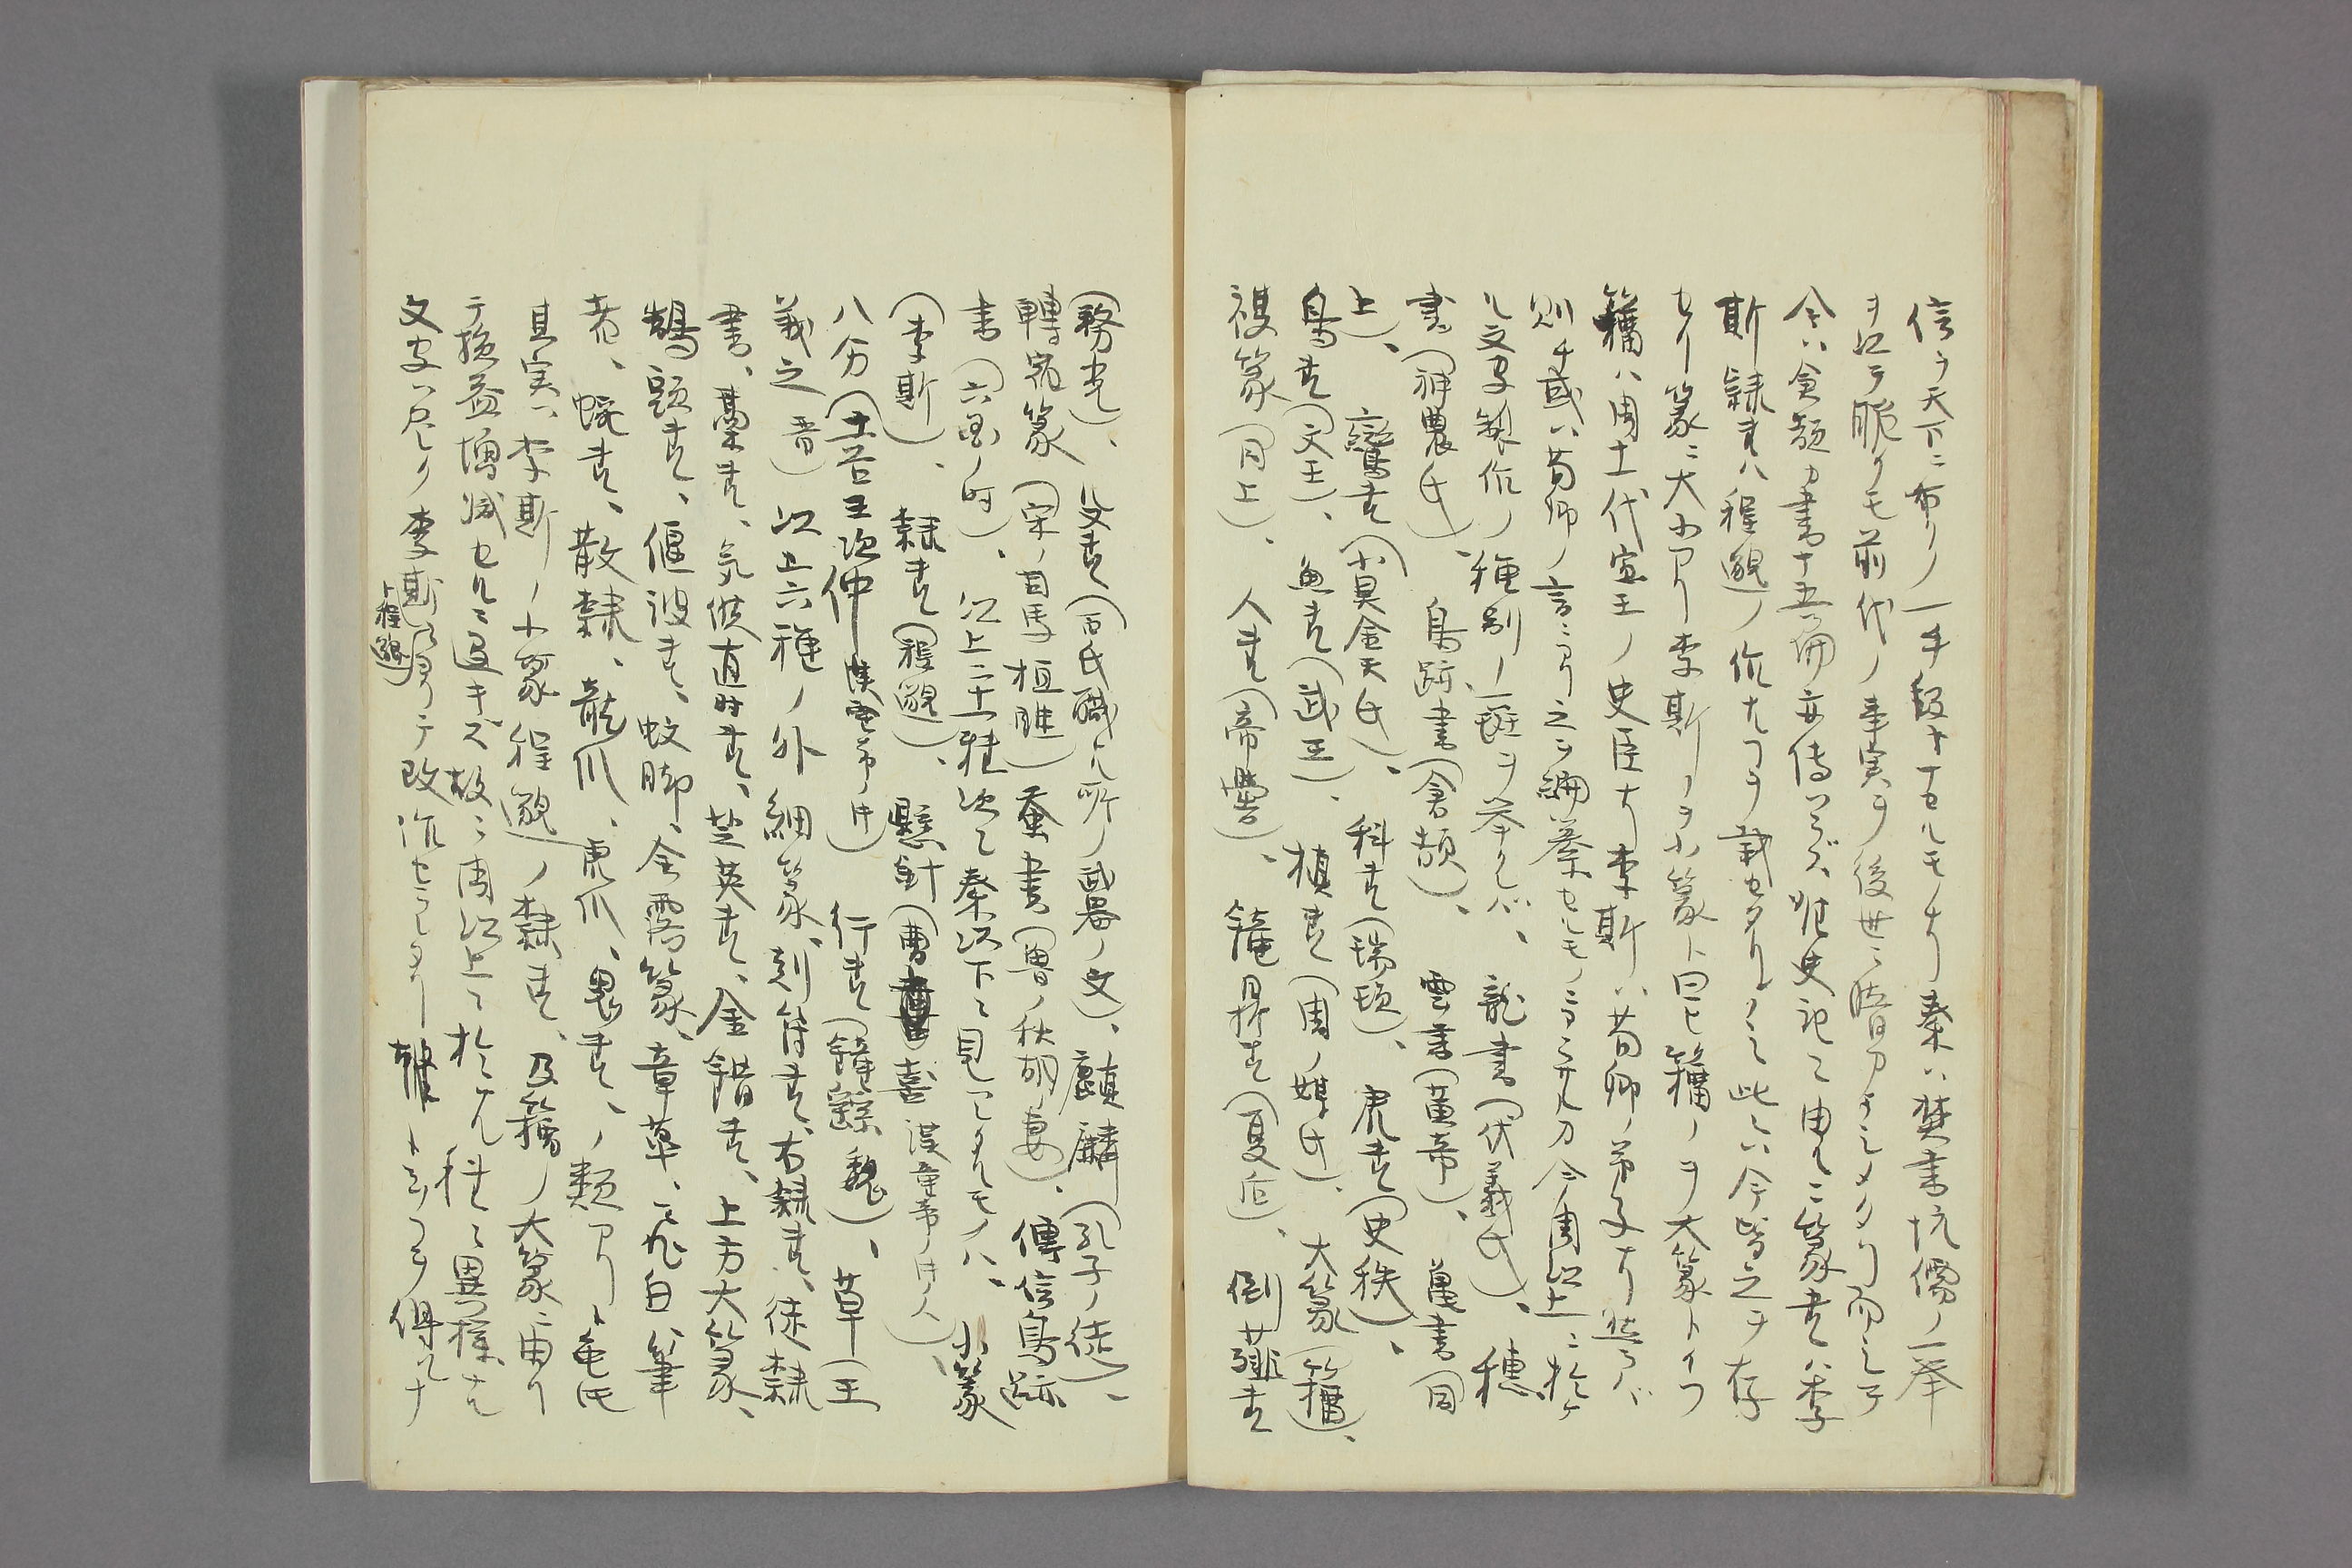 信ヲ天下ニ布クノ一手段ナセルモノナリ秦ハ焚書坑儒ノ一挙
ヲ以テ脆クモ前代ノ事実ヲ後世ニ暗カラシメタリ而シテ
今ハ倉頡カ書十五篇亦伝ハラズ唯史記ニ由ルニ篆書ハ李
斯隷書ハ程邈ノ作ナルヿヲ載セタルノミ此六今皆之ヲ存
セリ篆ニ大小アリ李斯ノヲ小篆ト曰ヒ籀ノヲ大篆トイフ
籀ハ周十代宣王ノ史臣ナリ李斯ハ荀卿ノ弟子ナリ然ラバ
則チ或ハ荀卿ノ言ニヨリ之ヲ編纂セルモノニアラズ乎今周以上ニ於ケ
ル文字製作ノ種別ノ一班ヲ挙クレバ、龍書(伏羲氏)、穂
書(神農氏)、鳥跡書(倉頡)、雲書(黄帝)、亀書(同
上)、鸞書(小昊金天氏)、科書(瑞頊)、虎書(史秩)、
鳥書(文王)、魚書(武王)、填書(周ノ媒氏)、大篆(籀)、
複篆(同上)、人書(帝嚳)、鐘鼎書(夏后)、倒薤書
(務光)、殳書(百氏職ル所ノ武器ノ文)、麒麟(孔子ノ徒)、
轉宿篆(宋ノ司馬桓雎)蚕書(魯ノ秋胡ノ妻)、傳信鳥跡
書(六国ノ時)、以上二十一種次ニ秦以下ニ見ハレタルモノハ、小篆
(李斯)、隷書(程邈)、懸針(曹喜漢章帝ノ時ノ人)、
八分(上谷王次仲漢章帝ノ時)行書(鐘繇魏)、草(王
羲之晋)以上六種ノ外細篆、刻符書、古隷書、徒隷
書、藁書、気候直時書、芝英書、金錯書、上方大篆、
鶴頭書、偃波書、蚊脚、全露篆、章草、飛白、筆
書、蝌書、散隷、龍爪、虎爪、鬼書、ノ類アリト雖氏
其実ハ李斯ノ小篆程邈ノ隷書、及籀ノ大篆ニ由リ
テ損益増減セルニ過キズ故ニ周以上ニ於ケル種々異様ナル
文字ハ尽ク李斯ト程邈ニヨリテ改作セラレタリト云フヿヲ得ルナ